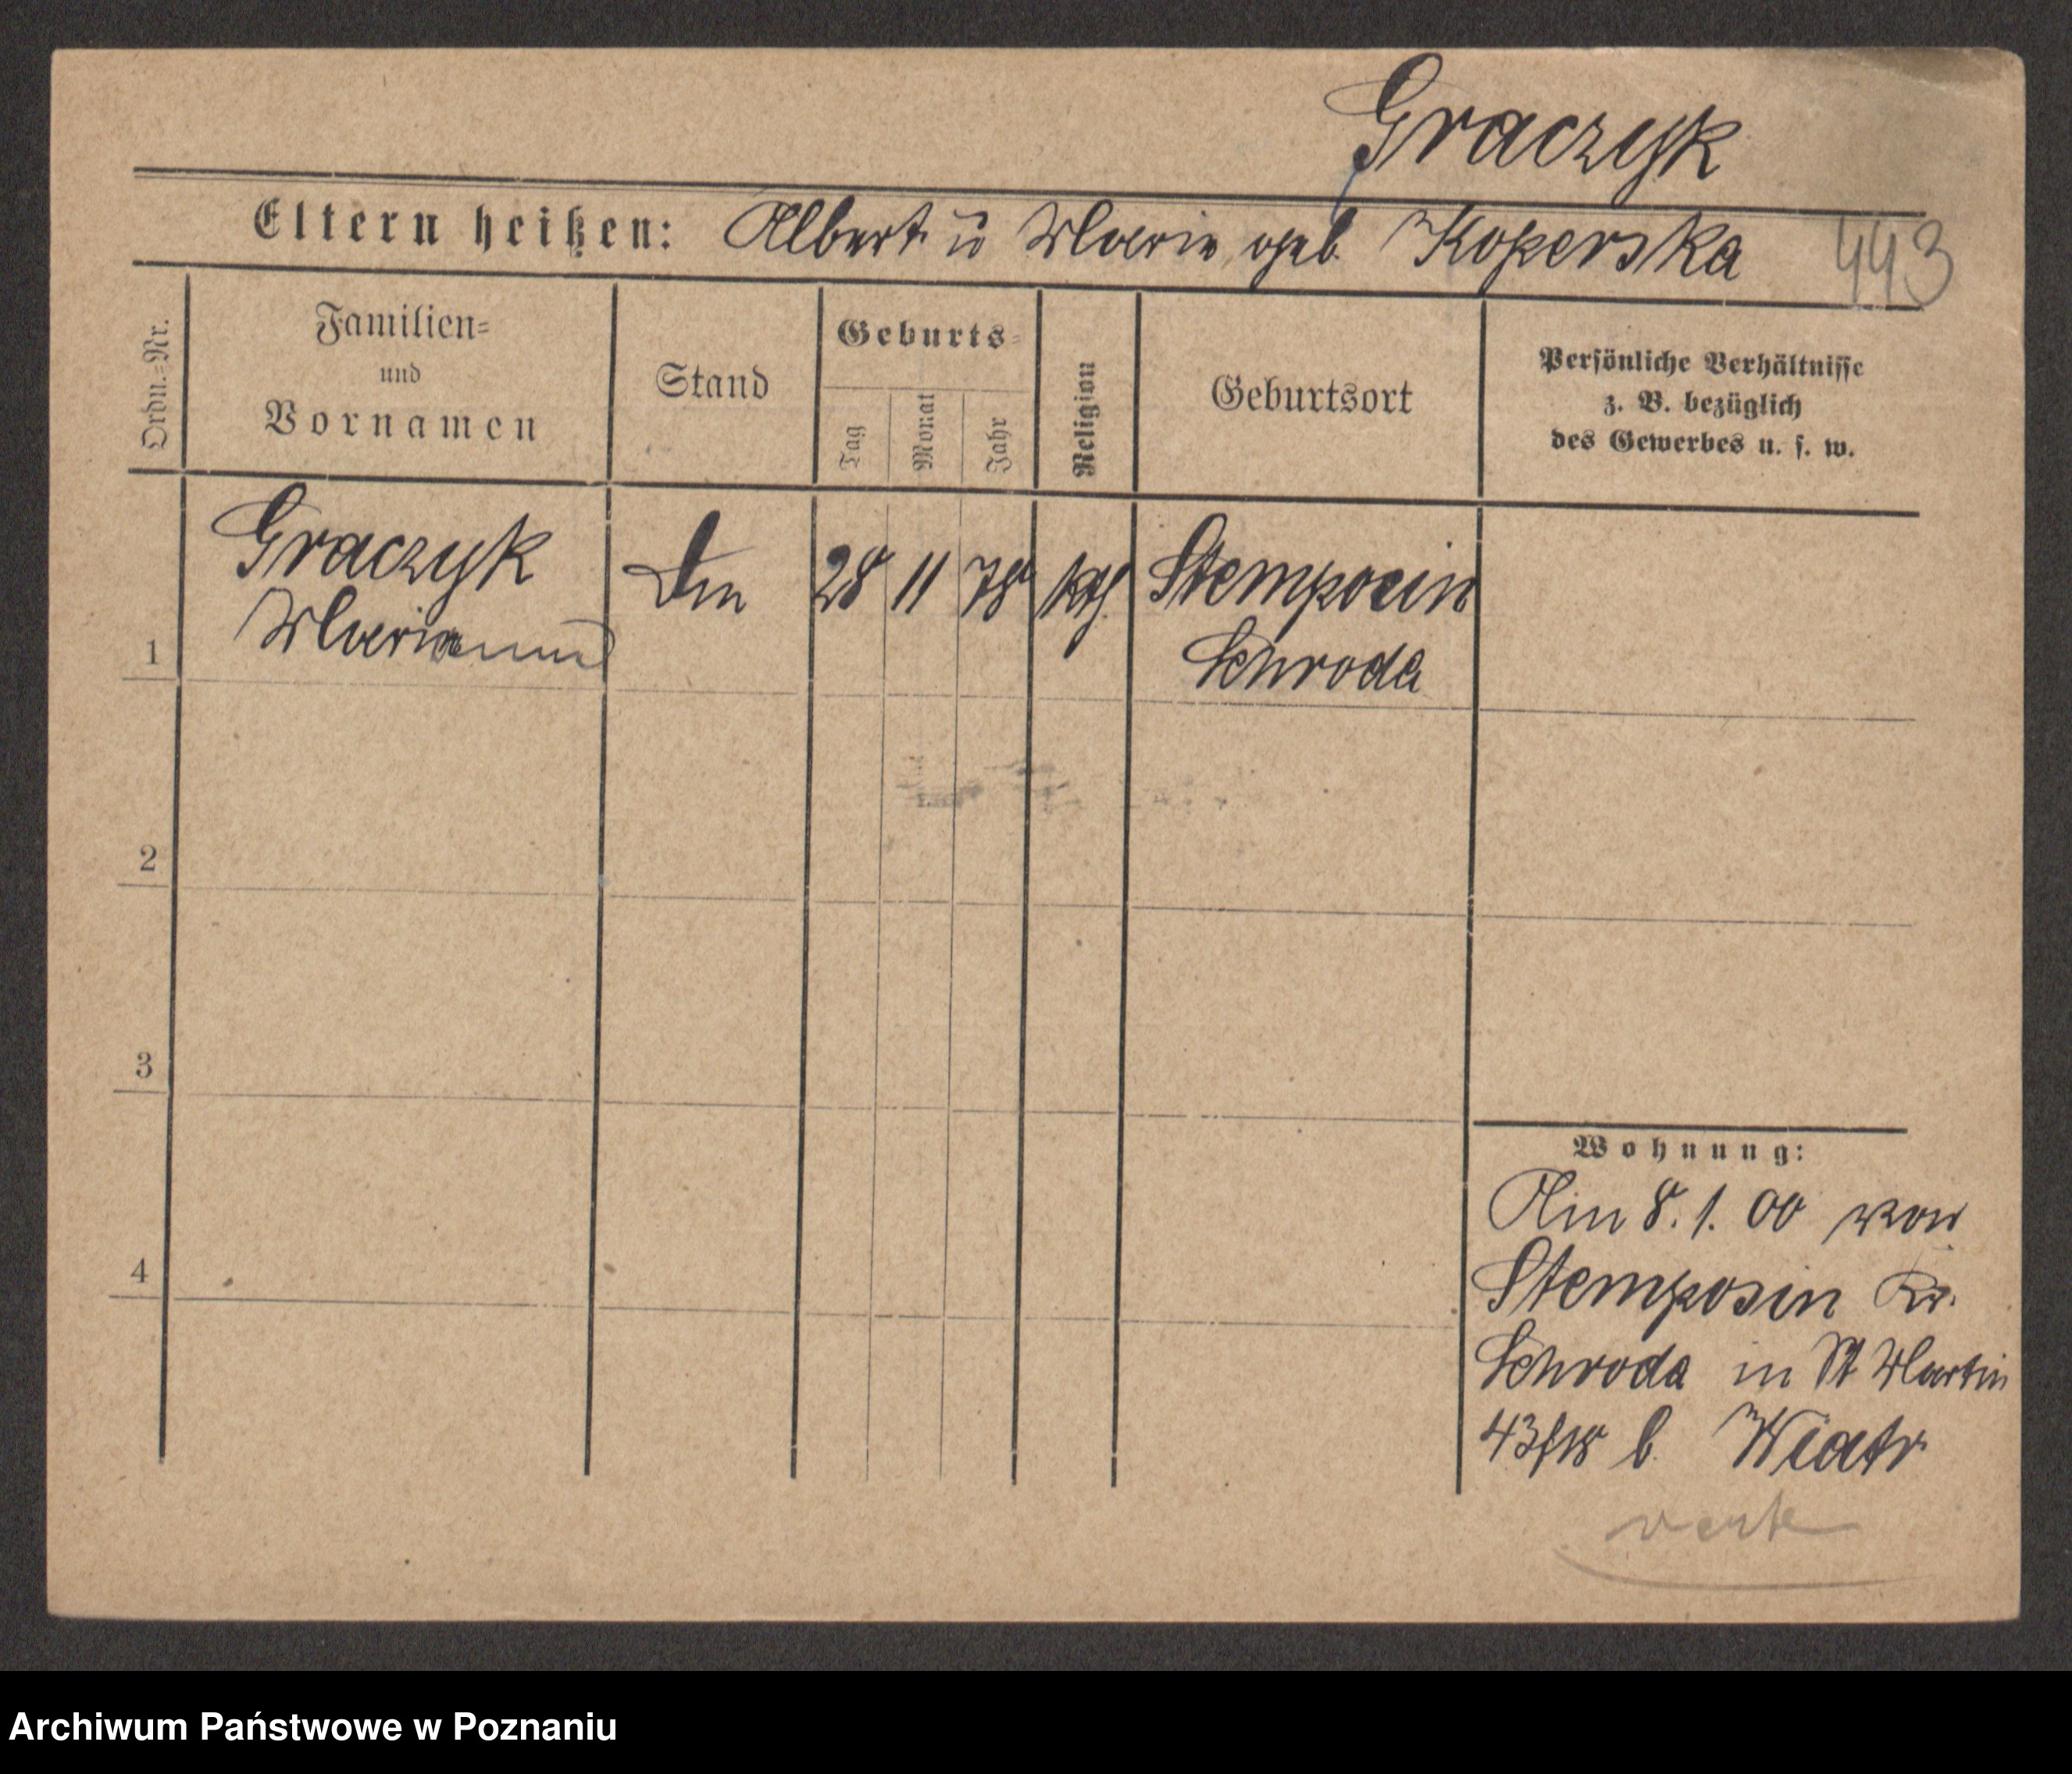 Graczyk
Eltern heißen: Albert u Marie geb. Koperska 443
Ordn.-Nr.
Familien-
und
Vornamen
Stand
Geburts-
Tag
Monat
Jahr
Religion
Geburtsort
Persönliche Verhältnisse
z. B. bezüglich
des Gewerbes u. s. w.
Graczyk 28 11 78 kth. Stemposin
1 Marianna Schroda
2
3
4
Wohnung:
Am 8. 1. 00 von
Stemposin Kr.
Schroda in St Martin
b. Wiatr
verte
Archiwum Państwowe w Poznaniu